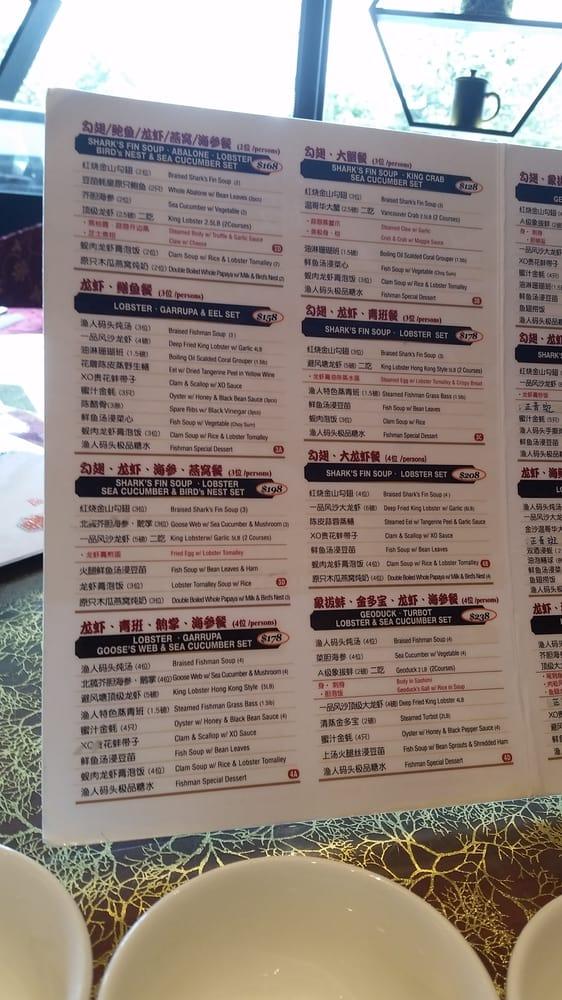 勾翅/鲍鱼/龙虾/燕窝/海参餐 (2位 /persons)
SHARK'S FIN SOUP · ABALONE · LOBSTER
BIRD's NEST & SEA CUCUMBER SET $168
红烧金山勾翅 (2位) Braised Shark's Fin Soup (2)
豆苗蚝皇原只鲍鱼 (2只) Whole Abalone w/ Bean Leaves (2pcs)
芥胆海参 (2位) Sea Cucumber w/ Vegetable (2)
顶级龙虾 (2.5磅) 二吃 King Lobster 2.5LB (2Courses)
Steamed Body w/ Truffle & Garlic Sauce
Claw w/ Cheese
蚬肉龙虾膏泡饭 (2位) Clam Soup w/ Rice & Lobster Tomalley (2)
原只木瓜燕窝炖奶 (2位) Double Boiled Whole Papaya w/ Milk & Bird's Nest (2)
龙虾、鳝鱼餐 (3位 /persons)
LOBSTER · GARRUPA & EEL SET $158
渔人码头炖汤 (3位) Braised Fishman Soup (3)
一品风沙龙虾 (4磅) Deep Fried King Lobster w/ Garlic 4LB
油淋珊瑚斑 (1.5磅) Boiling Oil Scalded Coral Grouper (1.5lb)
花雕陈皮蒸野生鳝 Eel w/ Dried Tangerine Peel in Yellow Wine
XO贵花蚌带子 Clam & Scallop w/ XO Sauce
蜜汁金蚝 (3只) Oyster w/ Honey & Black Bean Sauce (3pcs)
陈醋骨(3条) Spare Ribs w/ Black Vinegar (3pcs)
鲜鱼汤浸菜心 Fish Soup w/ Vegetable (Choy Sum)
蚬肉龙虾膏泡饭 (3位) Clam Soup w/ Rice & Lobster Tomalley
渔人码头极品糖水 Fishman Special Dessert 3A
勾翅、龙虾、海参、燕窝餐 (3位 /persons)
SHARK'S FIN SOUP · LOBSTER
SEA CUCUMBER & BIRD's NEST SET $198
红烧金山勾翅 (3位) Braised Shark's Fin Soup (3)
北菇芥胆海参、鹅掌 (3位) Goose Web w/ Sea Cucumber & Mushroom (3)
一品风沙龙虾 (5磅) 二吃 King Lobster w/ Garlic 5LB (2 Courses)
• 龙虾膏煎蛋 Fried Egg w/ Lobster Tomalley
火腿鲜鱼汤浸豆苗 Fish Soup w/ Bean Leaves & Ham
龙虾膏泡饭 (3位) Lobster Tomalley Soup w/ Rice
原只木瓜燕窝炖奶 (3位) Double Boiled Whole Papaya w/ Milk & Bird's Nest (3) 3D
龙虾、青斑、鹅掌、海参餐 (4位 /persons)
LOBSTER · GARRUPA
GOOSE'S WEB & SEA CUCUMBER SET $178
渔人码头炖汤 (4位) Braised Fishman Soup (4)
北菇芥胆海参、鹅掌 (4位) Goose Web w/ Sea Cucumber & Mushroom (4)
避风塘顶级龙虾 (5磅) King Lobster Hong Kong Style (5LB)
渔人特色蒸青斑 (1.5磅) Steamed Fishman Grass Bass (1.5lb)
蜜汁金蚝 (4只) Oyster w/ Honey & Black Bean Sauce (4)
XO贵花蚌带子 Clam & Scallop w/ XO Sauce
鲜鱼汤浸豆苗 Fish Soup w/ Bean Leaves
蚬肉龙虾膏泡饭 (4位) Clam Soup w/ Rice & Lobster Tomalley
渔人码头极品糖水 Fishman Special Dessert 4A
勾翅、大蟹餐 (3位 /persons)
SHARK'S FIN SOUP · KING CRAB
SEA CUCUMBER SET $128
红烧金山勾翅 (3位) Braised Shark's Fin Soup (3)
温哥华大蟹 (2.5磅) 二吃 Vancouver Crab 2.5LB (2 Courses)
Steamed Claw w/ Garlic
Crab & Crab w/ Maggie Sauce
油淋珊瑚斑 (1.5磅) Boiling Oil Scalded Coral Grouper (1.5lb)
鲜鱼汤浸菜心 Fish Soup w/ Vegetable (Choy Sum)
蚬肉龙虾膏泡饭 (3位) Clam Soup w/ Rice & Lobster Tomalley
渔人码头极品糖水 Fishman Special Dessert 3B
勾翅、龙虾、青斑餐 (3位 /persons)
SHARK'S FIN SOUP · LOBSTER SET $178
红烧金山勾翅 (3位) Braised Shark's Fin Soup (3)
避风塘龙虾 (5磅) 二吃 King Lobster Hong Kong Style 5LB (2 Courses)
Steamed Egg w/ Lobster Tomalley & Crispy Bread
渔人特色蒸青斑 (1.5磅) Steamed Fishman Grass Bass (1.5lb)
鲜鱼汤浸豆苗 Fish Soup w/ Bean Leaves
蚬肉泡饭 (3位) Clam Soup w/ Rice
渔人码头极品糖水 Fishman Special Dessert 3C
勾翅、大龙虾餐 (4位 /persons)
SHARK'S FIN SOUP · LOBSTER SET $208
红烧金山勾翅 (4位) Braised Shark's Fin Soup (4)
一品风沙大龙虾 (6磅) Deep Fried King Lobster w/ Garlic (6LB)
陈皮蒜蓉蒸鳝 Steamed Eel w/ Tangerine Peel & Garlic Sauce
XO贵花蚌带子 Clam & Scallop w/ XO Sauce
鲜鱼汤浸豆苗 Fish Soup w/ Bean Leaves
蚬肉龙虾膏泡饭 (4位) Clam Soup w/ Rice & Lobster Tomalley
原只木瓜燕窝炖奶 (4位) Double Boiled Whole Papaya w/ Milk & Bird's Nest (4) 4B
象拔蚌、金多宝、龙虾、海参餐 (4位 /persons)
GEODUCK · TURBOT
LOBSTER & SEA CUCUMBER SET $238
渔人码头炖汤 (4位) Braised Fishman Soup (4)
菜胆海参 (4位) Sea Cucumber w/ Vegetable (4)
A级象拔蚌 (2磅) 二吃 Geoduck 2 LB (2Courses)
身、刺身 Body in Sashimi
胆泡饭 Geoduck's Gall w/ Rice in Soup
一品风沙顶级大龙虾 (4磅) Deep Fried King Lobster 4LB
清蒸金多宝 (2磅) Steamed Turbot (2LB)
蜜汁金蚝 (4只) Oyster w/ Honey & Black Pepper Sauce (4)
上汤火腿丝浸豆苗 Fish Soup w/ Bean Sprouts & Shredded Ham
渔人码头极品糖水 Fishman Special Dessert